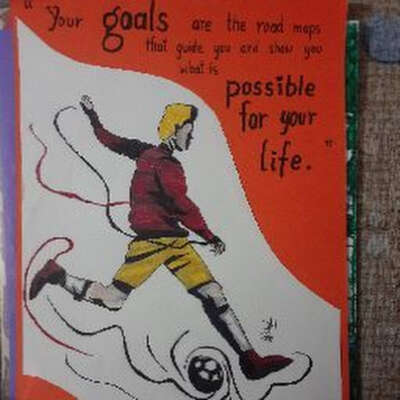 " Your goals are the road maps
that guide you and show you
what is
possible
for your
life. "